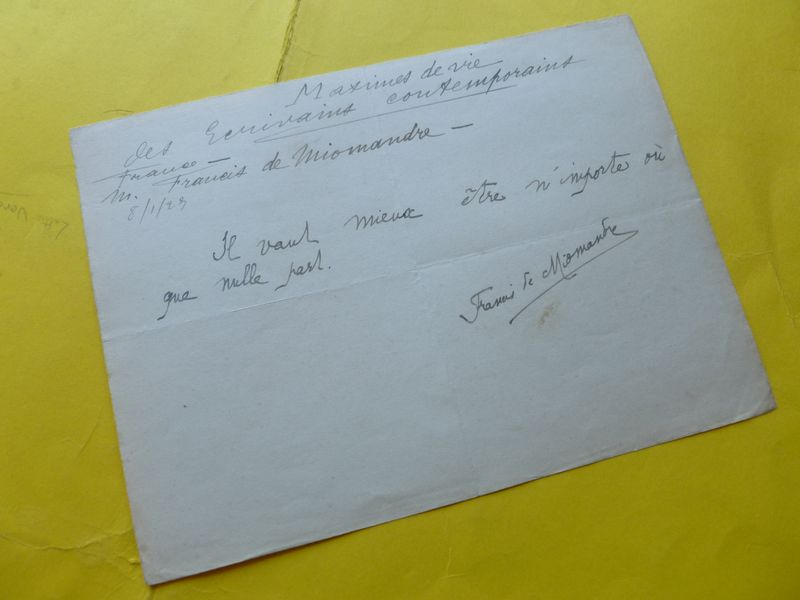 Maximes de vie
des Ecrivains contemporains
France —
M. Francis de Miomandre —
8/1/29
Il vaut mieux être n'importe où
que nulle part.
Francis de Miomandre